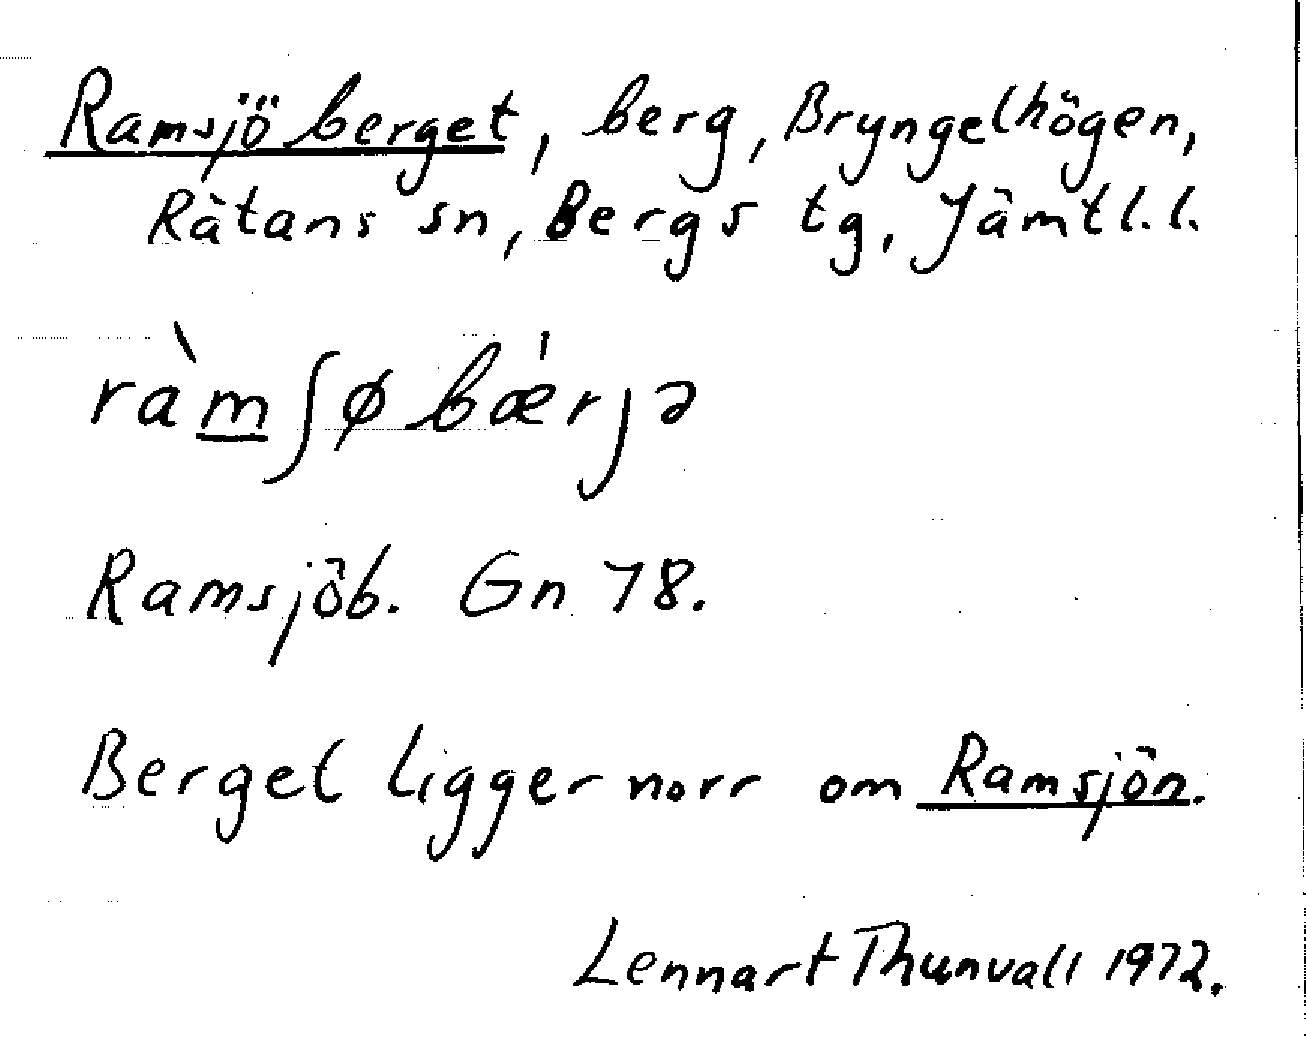 Ramsjöberget, berg, Bryngelhögen,
Rätans sn, Bergs tg, Jämtl.l.
ràm̲ʃøbǽrjə
Ramsjöb. Gn 78.
Berget ligger norr om Ramsjön.
Lennart Thunvall 1972.